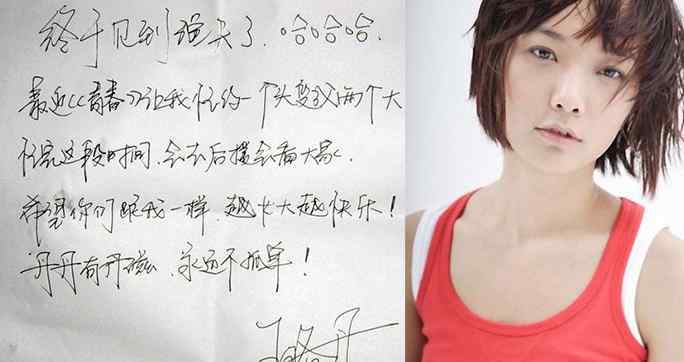 终于见到 了.哈哈哈.
最近《青春》让我忙的一个头变 两个大
但是这段时间.会去后援会看大家.
希望你们跟我一样.越长大越快乐!
丹丹有丹磁.永远不孤单!
王珞丹